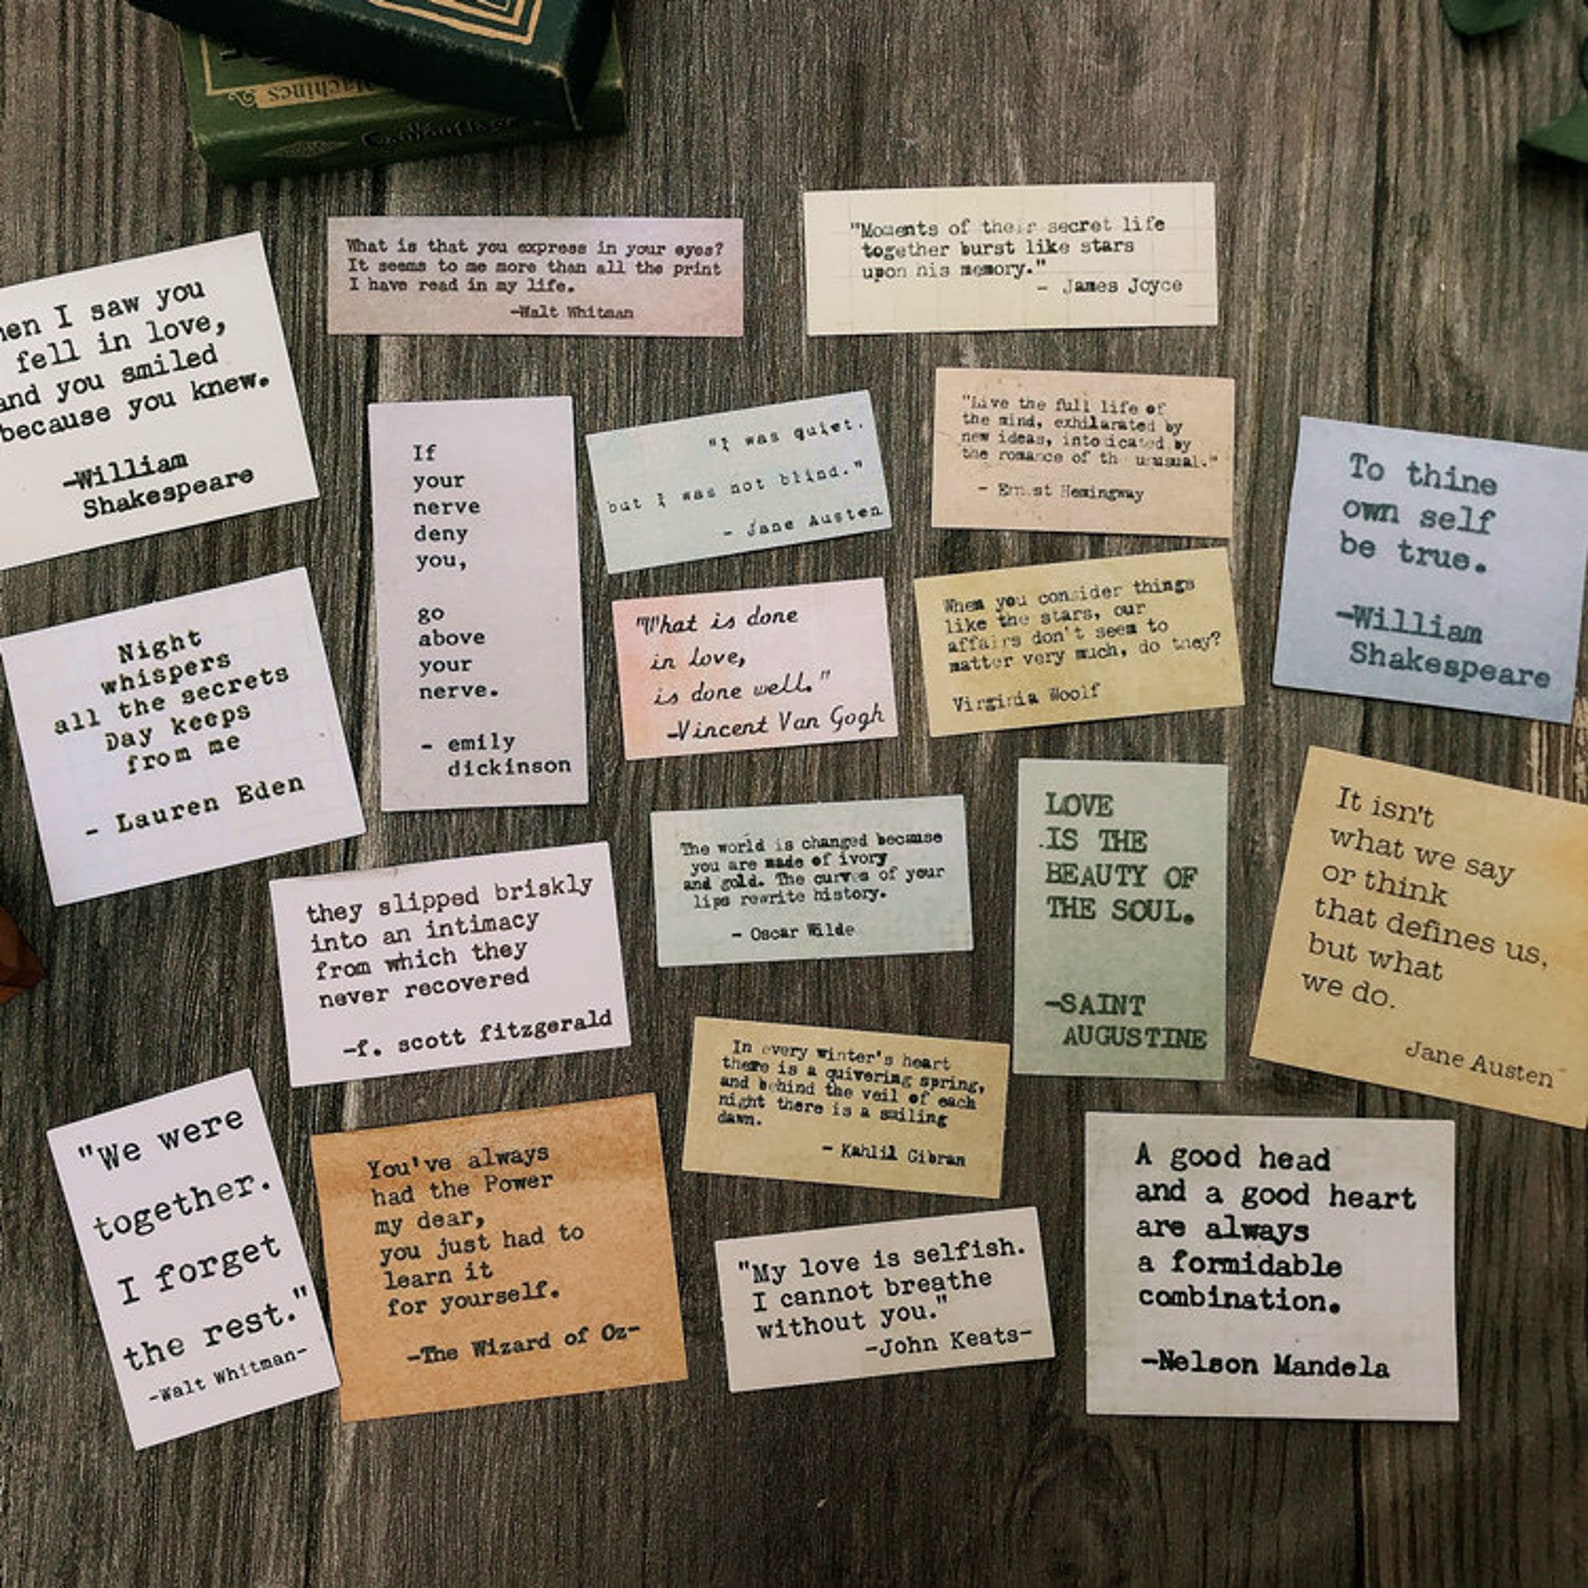 Machines
Camouflage
What is that you express in your eyes?
It seems to me more than all the print
I have read in my life.
-Walt Whitman
"Moments of their secret life
together burst like stars
upon his memory."
- James Joyce
I saw you
fell in love,
and you smiled
because you knew.
-William
Shakespeare
If
your
nerve
deny
you,
go
above
your
nerve.
- emily
dickinson
"I was quiet.
but I was not blind."
- Jane Austen
"Live the full life of
the mind, exhilarated by
new ideas, intoxicated by
the romance of the unusual."
- Ernest Hemingway
To thine
own self
be true.
-William
Shakespeare
Night
whispers
all the secrets
Day keeps
from me
- Lauren Eden
"What is done
in love,
is done well."
-Vincent Van Gogh
When you consider things
like the stars, our
affairs don't seem to
matter very much, do they?
Virginia Woolf
they slipped briskly
into an intimacy
from which they
never recovered
-f. scott fitzgerald
The world is changed because
you are made of ivory
and gold. The curves of your
lips rewrite history.
- Oscar Wilde
LOVE
IS THE
BEAUTY OF
THE SOUL.
-SAINT
AUGUSTINE
It isn't
what we say
or think
that defines us,
but what
we do.
Jane Austen
"We were
together.
I forget
the rest."
-Walt Whitman-
You've always
had the Power
my dear,
you just had to
learn it
for yourself.
-The Wizard of Oz-
In every winter's heart
there is a quivering spring,
and behind the veil of each
night there is a smiling
dawn.
- Kahlil Gibran
"My love is selfish.
I cannot breathe
without you."
-John Keats-
A good head
and a good heart
are always
a formidable
combination.
-Nelson Mandela